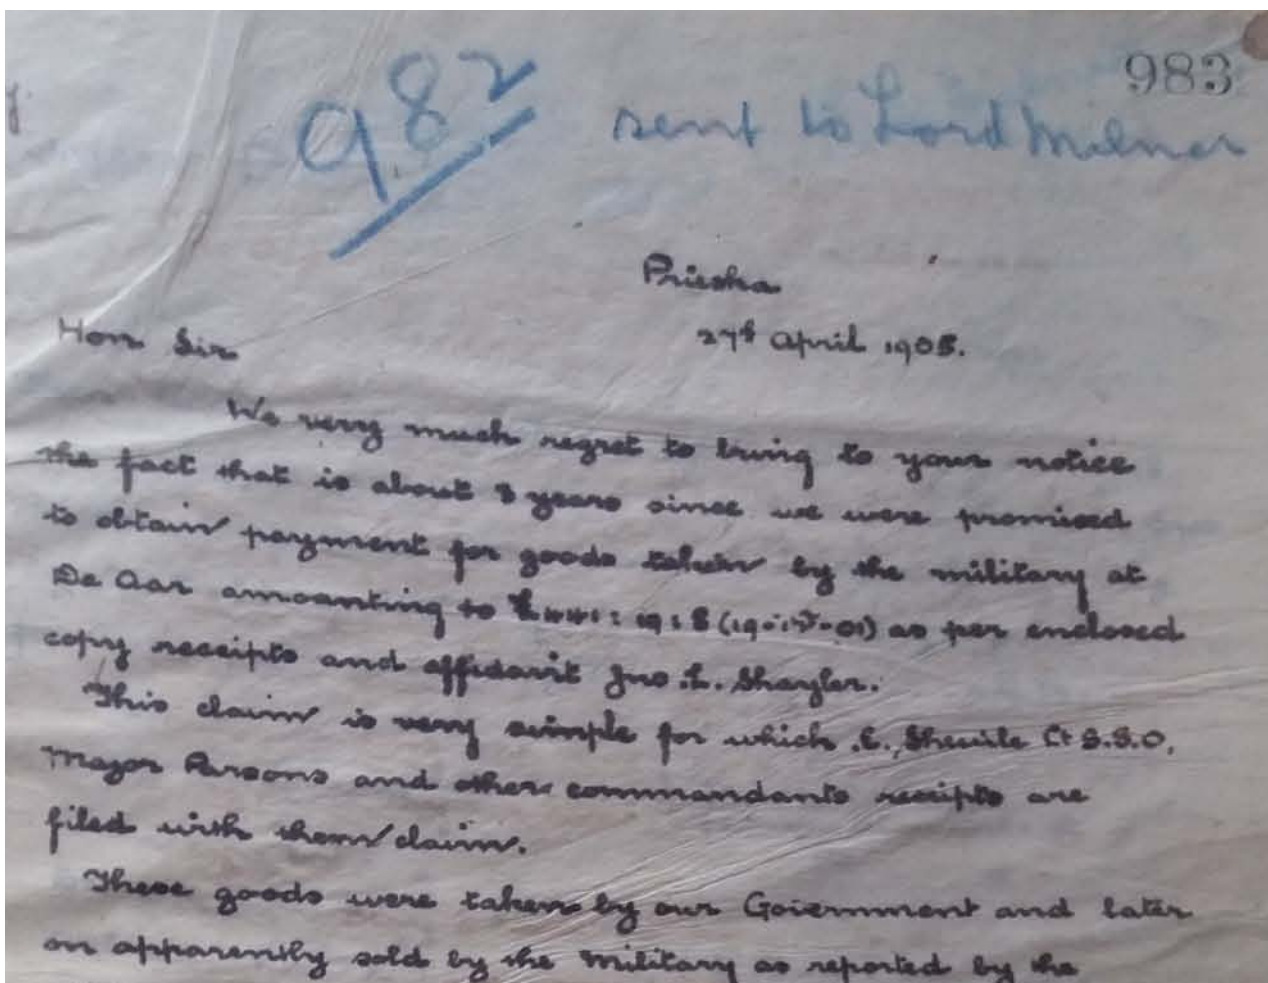 983
982 sent to Lord Milner
Prieska
27th April 1905.
Hon Sir
We very much regret to bring to your notice
the fact that is about 3 years since we were promised
to obtain payment for goods taken by the military at
De Aar amounting to £441:19:8 as per enclosed
copy receipts and affidavit Jno. L. Shayler.
This claim is very simple for which Lt S.S.O,
Major Parsons and other commandants receipts are
filed with them claim.
These goods were taken by our Government and later
on apparently sold by the Military as reported by the